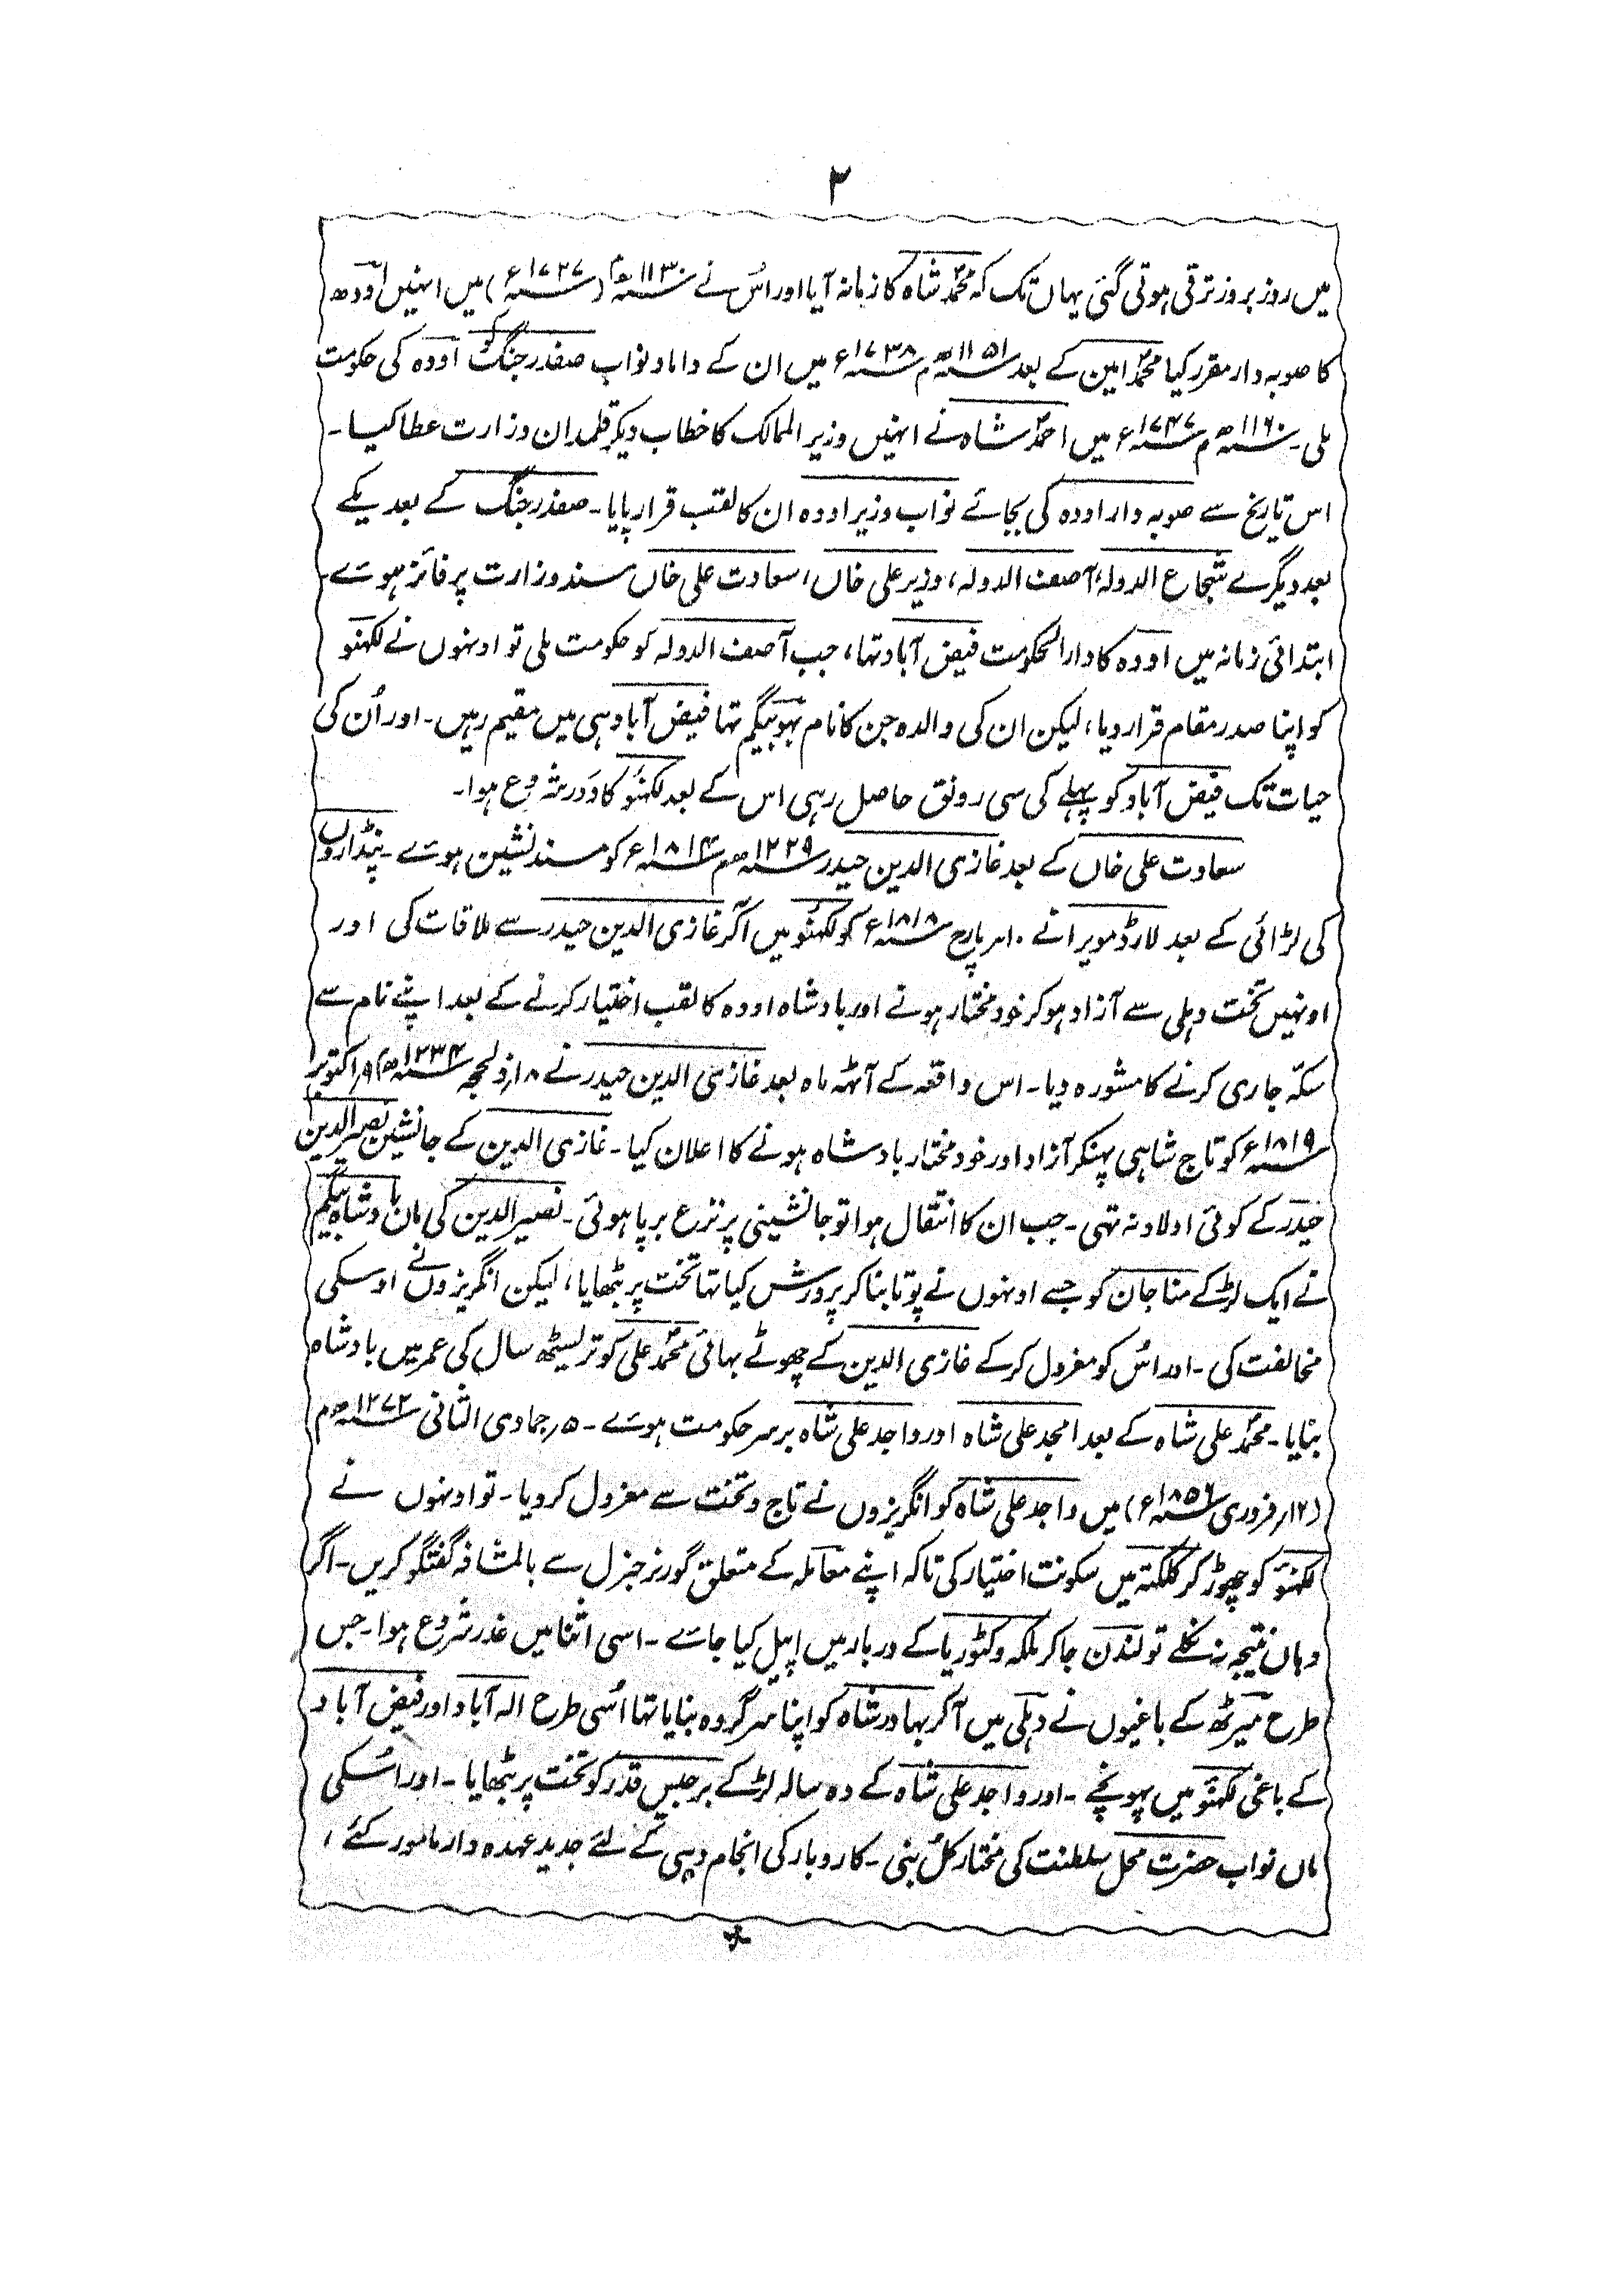 ۲
میں روز بروز ترقی ہوتی گئی یہاں تک کہ محمد شاہ کا زمانہ آیا اور اُس نے سنہ ۱۱۳۰ھ م (سنہ ۱۷۲۷ء) میں انہیں اودھ
کا صوبہ دار مقرر کیا محمد امین کے بعد سنہ ۱۱۵۱ھ م سنہ ۱۷۳۸ء میں ان کے داماد نواب صفدر جنگ کو اودہ کی حکومت
ملی۔ سنہ ۱۱۶۰ھ م سنہ ۱۷۴۷ء میں احمد شاہ نے انہیں وزیر الممالک کا خطاب دیکر قلمدان وزارت عطا کیا۔
اس تاریخ سے صوبہ دار اودہ کی بجائے نواب وزیر اودہ ان کا لقب قرار پایا۔ صفدر جنگ کے بعد یکے
بعد دیگرے شجاع الدولہ، آصف الدولہ، وزیر علی خاں، سعادت علی خاں مسند وزارت پر فائز ہوے۔
ابتدائی زمانہ میں اودہ کا دار الحکومت فیض آباد تہا، جب آصف الدولہ کو حکومت ملی تو اونہوں نے لکہنو
کو اپنا صدر مقام قرار دیا، لیکن ان کی والدہ جن کا نام بہو بیگم تہا فیض آباد ہی میں مقیم رہیں۔ اور اُن کی
حیات تک فیض آباد کو پہلے کی سی رونق حاصل رہی اس کے بعد لکہنؤ کا دَور شروع ہوا۔
سعادت علی خاں کے بعد غازی الدین حیدر سنہ ۱۲۲۹ھ م سنہ ۱۸۱۴ء کو مسند نشین ہوے۔ پنڈاروں
کی لڑائی کے بعد لارڈ مویرا نے ۱۰؍ مارچ سنہ ۱۸۱۸ء کو لکہنؤ میں آکر غازی الدین حیدر سے ملاقات کی اور
اونہیں تخت دہلی سے آزاد ہوکر خود مختار ہونے اور بادشاہ اودہ کا لقب اختیار کرنے کے بعد اپنے نام سے
سکہ جاری کرنے کا مشورہ دیا۔ اس واقعہ کے آٹہہ ماہ بعد غازی الدین حیدر نے ۱۸؍ ذلحجہ سنہ ۱۲۳۴ھ م ۹؍ اکتوبر
سنہ ۱۸۱۹ء کو تاج شاہی پہنکر آزاد اور خود مختار بادشاہ ہونے کا اعلان کیا۔ غازی الدین کے جانشین نصیر الدین
حیدر کے کوئی اولاد نہ تہی۔ جب ان کا انتقال ہوا تو جانشینی پر نزع برپا ہوئی۔ نصیر الدین کی ماں بادشاہ بیگم
نے ایک لڑکے منا جان کو جسے اونہوں نے پوتا بناکر پرورش کیا تہا تخت پر بٹھایا، لیکن انگریزوں نے اوسکی
مخالفت کی۔ اور اُس کو معزول کرکے غازی الدین کے چھوٹے بہائی محمد علی کو ترلیسٹھ سال کی عمر میں بادشاہ
بنایا۔ محمد علی شاہ کے بعد امجد علی شاہ اور واجد علی شاہ برسر حکومت ہوے۔ ۵؍ جمادی الثانی سنہ ۱۲۷۲ھ م
(۱۲؍ فروری سنہ ۱۸۵۶ء) میں واجد علی شاہ کو انگریزوں نے تاج و تخت سے معزول کردیا۔ تو اونہوں نے
لکہنؤ کو چھوڑ کر کلکتہ میں سکونت اختیار کی تاکہ اپنے معاملہ کے متعلق گورنر جنرل سے بالمشافہ گفتگو کریں۔ اگر
وہاں نتیجہ نہ نکلے تو لندن جاکر ملکہ وکٹوریا کے دربار میں اپیل کیا جاے۔ اسی اثنا میں غدر شروع ہوا۔ جس
طرح میرٹھ کے باغیوں نے دہلی میں آکر بہادر شاہ کو اپنا سرگروہ بنایا تہا اُسی طرح الہ آباد اور فیض آباد
کے باغی لکہنؤ میں پہونچے۔ اور واجد علی شاہ کے دہ سالہ لڑکے برجیس قدر کو تخت پر بٹھایا۔ اور اُسکی
ماں نواب حضرت محل سلطنت کی مختار کل بنی۔ کاروبار کی انجام دہی کے لئے جدید عہدہ دار مامور کئے،